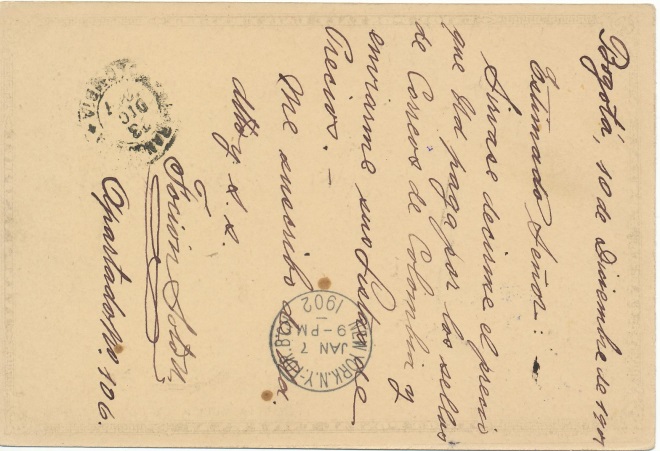 Bogotá, 10 de Diciembre de 1901
Estimado Señor:
Sirvase decirme el precio
que Ud paga por los sellos
de Correos de Colombia y
enviarme sus Listas de
Precios. –
Me suscribo de Ud.
Atto y S. S.
Apartado No 106
NEW YORK, N.Y.
JAN 7
9-PM
1902
DIC
13